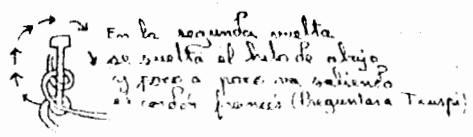 En la segunda vuelta
se suelta el hilo de abajo
y poco a poco va saliendo
el cordón francés (Preguntar a Truspi)